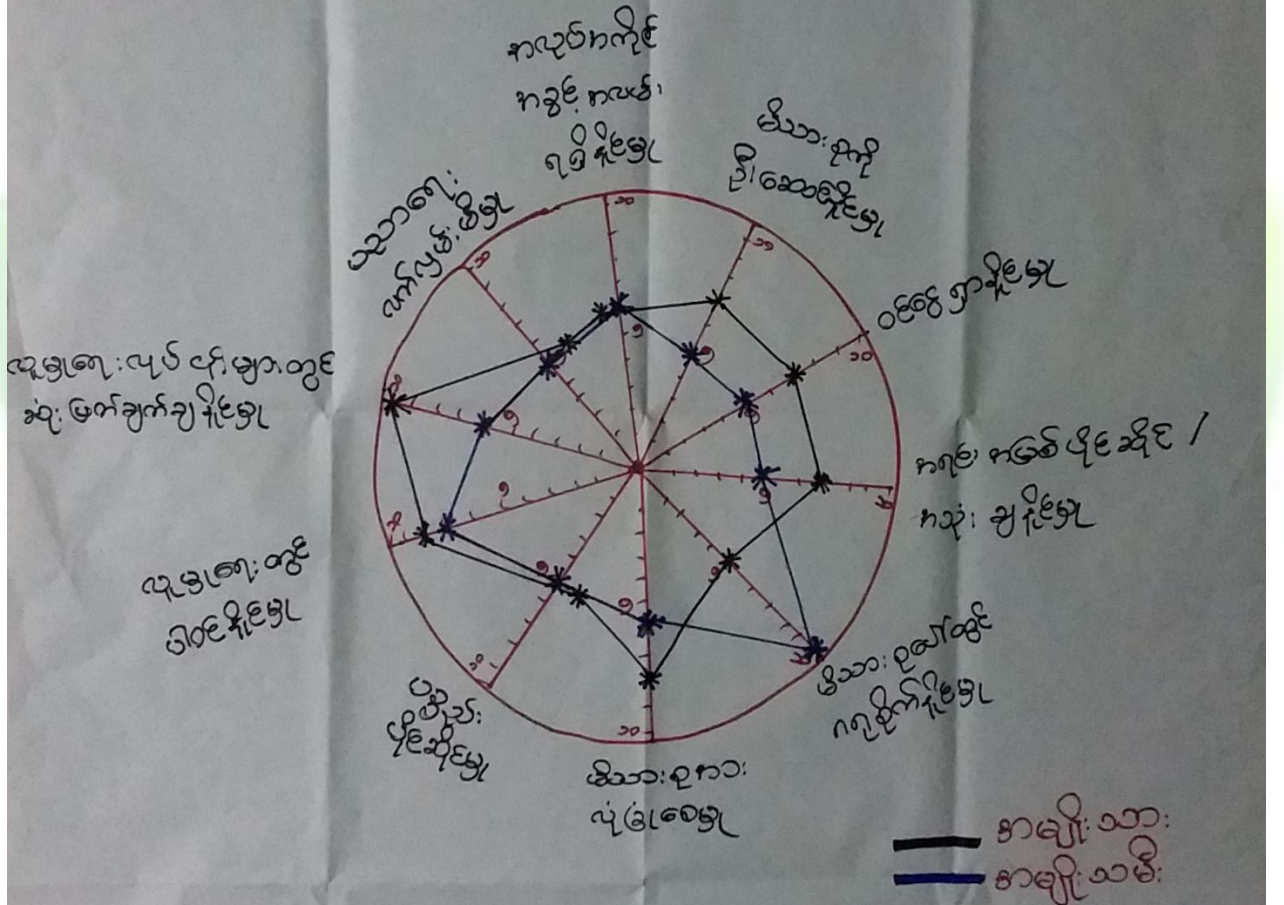 အလုပ်အကိုင်
အခွင့်အလမ်း
ရရှိနိုင်မှု
မိသားစုကို
ဦးဆောင်နိုင်မှု
ဝင်ငွေရှာနိုင်မှု
အရင်းအမြစ်ပိုင်ဆိုင်/
အသုံးချနိုင်မှု
မိသားစုပေါ်တွင်
ဂရုစိုက်နိုင်မှု
မိသားစုအား
လုံခြုံစေမှု
ပစ္စည်း
ပိုင်ဆိုင်မှု
လူမှုရေးတွင်
ပါဝင်နိုင်မှု
လူမှုရေးလုပ်ငန်းများတွင်
ဆုံးဖြတ်ချက်ချနိုင်မှု
ပညာရေး
လက်လှမ်းမီမှု
၁၀
၁၀
၁၀
၁၀
၁၀
၁၀
၁၀
၁၀
၁၀
၁၀
၅
၅
၅
၅
၅
၅
၅
၅
၅
၅
အမျိုးသား
အမျိုးသမီး